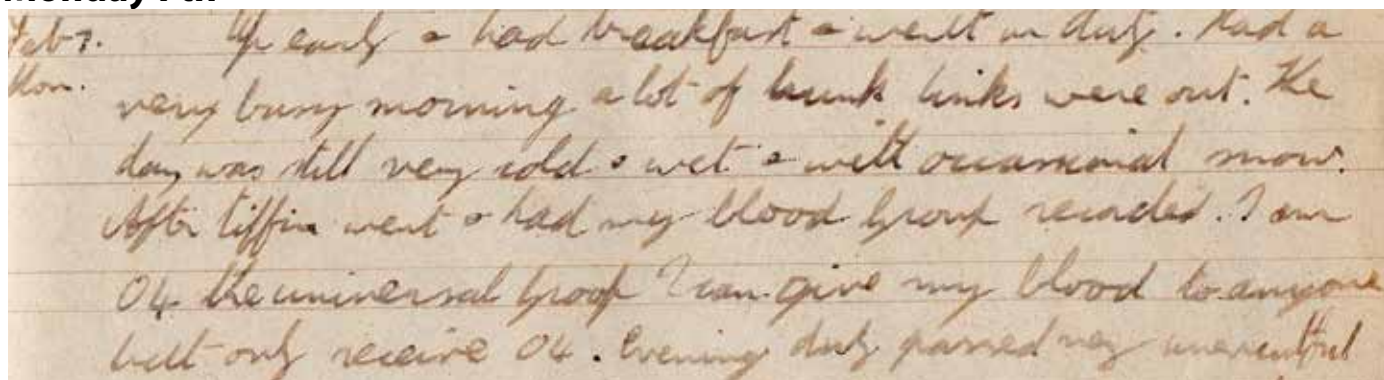 Feb 7. Up early & had breakfast & went on duty. Had a
Mon. very busy morning a lot of trunk links were out. The
day was still very cold & wet & with occasional snow.
After tiffin went & had my blood group recorded. I am
O4 the universal group I can give my blood to anyone
but only receive O4. Evening duty passed very uneventful